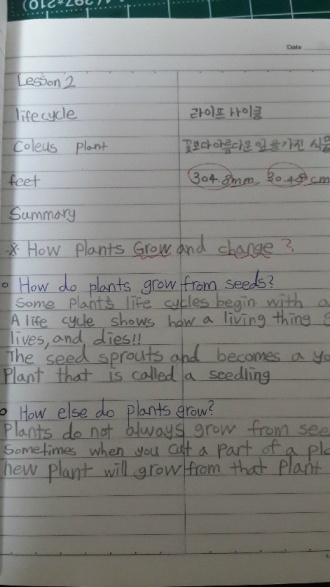 Date
Lesson 2
lifecycle 라이프 사이클
Coleus Plant 꽃보다 아름다운 잎을 가진 식물
feet 304.8mm, 30.48cm
Summary
※ How Plants Grow and change?
How do plants grow from seeds?
Some Plants life cycles begin with a
A life cycle shows how a living thing
lives, and dies!!
The seed sprouts and becomes a
Plant that is called a seedling
How else do plants grow?
Plants do not always grow from
Sometimes when you cut a part of a
new plant will grow from that Plant